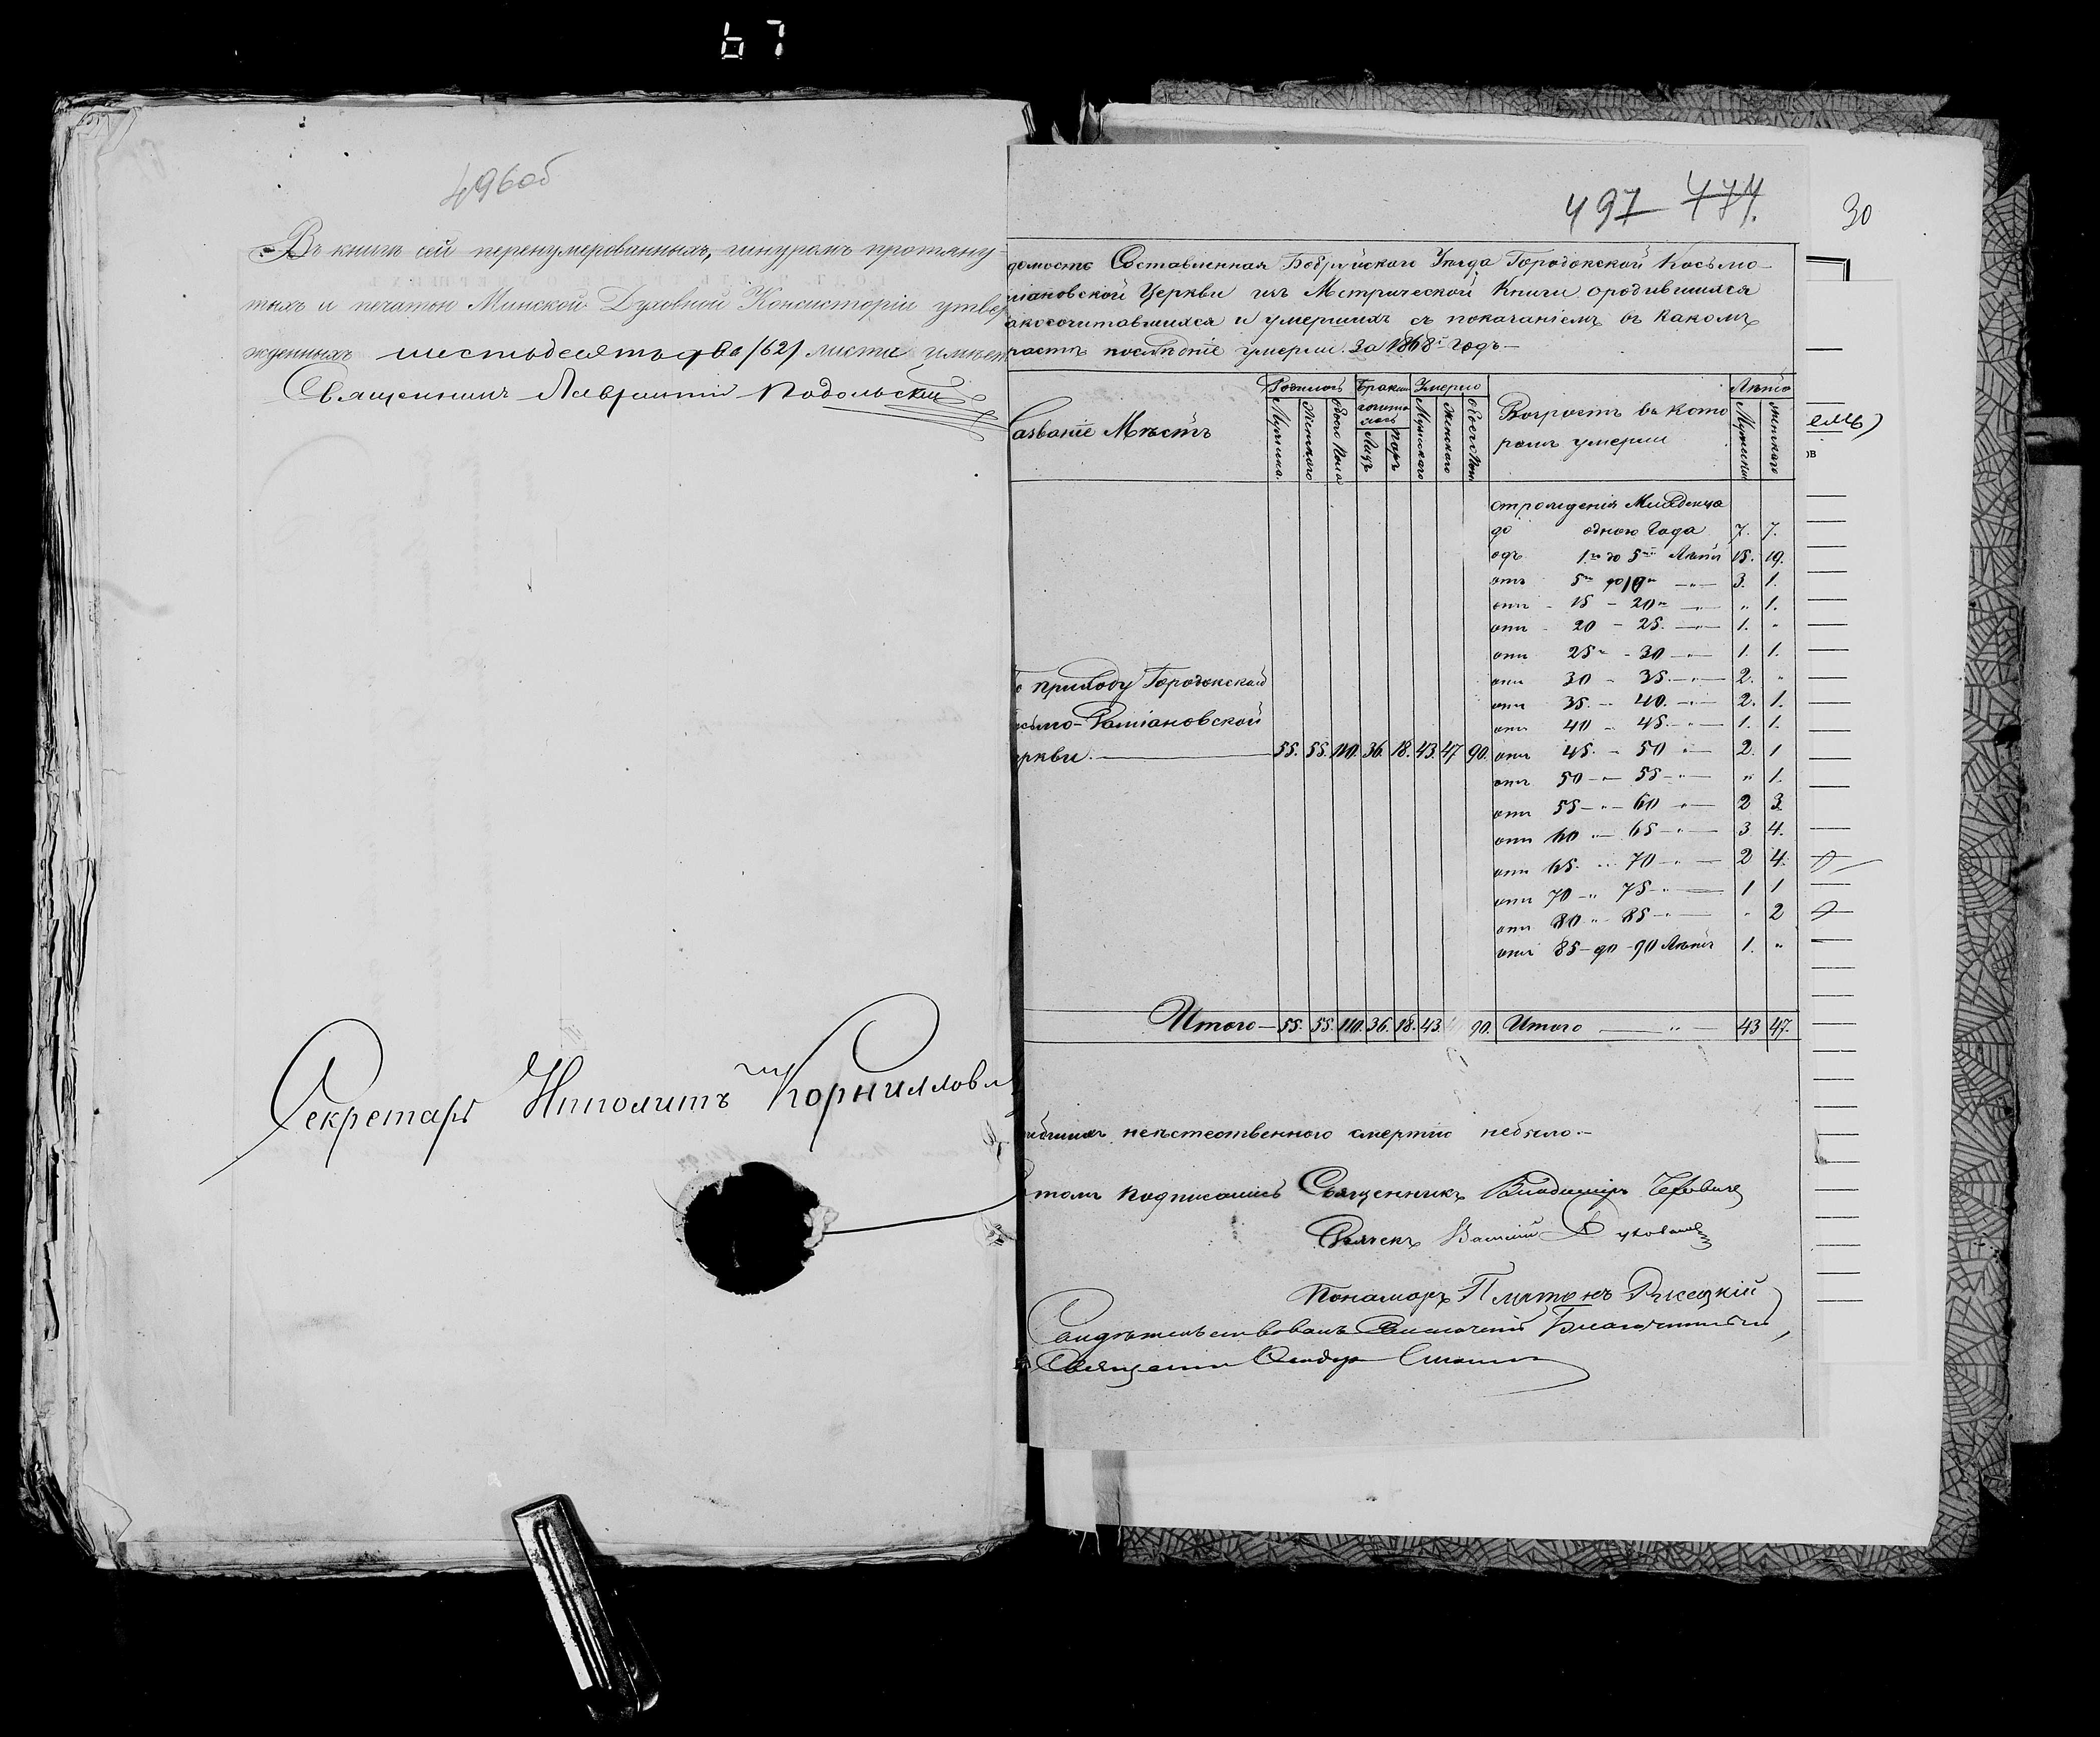 67
496об
Въ книгѣ сей перенумерованныхъ, шнуромъ протяну-
тыхъ и печатью Минской Духовной Консисторіи утвер
жденныхъ шестьдесятъ два /62/ листа имѣет
Священникъ Лаврентій Подольскій
Секретарь Ипполитъ Корниллов
497 474.
30
домость Составленная Бобруйскаго Уѣзда Городокской Косьмо-
міановской Церкви изъ Метрической Книги о родившихся
акосочитавшихся и умершихъ съ показаніемъ въ какомъ
растѣ послѣдніе умерли. За 1868й годъ—
азваніе Мѣстъ
Родилось
Мужска.
Женскаго
Обоего Пола
Бракомъ сочета лось
Лицъ
Паръ
Умерло
Мужскаго
Женскаго
Обоего Пола
Возрастъ въ кото
ромъ умерли
Лѣта
Мужскаго
Женскаго
емъ)
ов
отрожденія Младенца
до одного Года 7. 7.
одъ 1го до 5ти Лѣтъ 15. 19.
отъ 5ти до 10ти —"— 3. 1.
отъ - 15 - 20ти —"— " 1.
отъ - 20 - 25. —"— 1. "
отъ 25ти - 30 —"— 1. 1.
отъ 30 - 35. —"— 2. "
отъ 35. - 40. —"— 2. 1.
отъ 40 - 45. —"— 1. 1.
о приходу Городокской
осьмо-Даміановской
еркви. — 55. 55. 110. 36. 18. 43. 47 90. отъ 45. - 50 "— 2. 1
отъ 50 — 55 —"— " 1.
отъ 55 —"— 60 "— 2 3.
отъ 60 "— 65 —"— 3. 4.
отъ 65. " 70 —"— 2 4.
отъ 70 —" 75 —"— 1 1
отъ 80 " 85 —"— " 2
отъ 85 - до - 90 Лѣтъ 1. "
Итого — 55. 55. 110. 36. 18. 43. 47 90. Итого —"— 43 47.
неестественного смертію небыло.—
томъ подписались Священникъ Владиміръ
Дьячекъ Василій
Пономарь Платонъ
Свидѣтельствовалъ Благочинный,
Священникъ